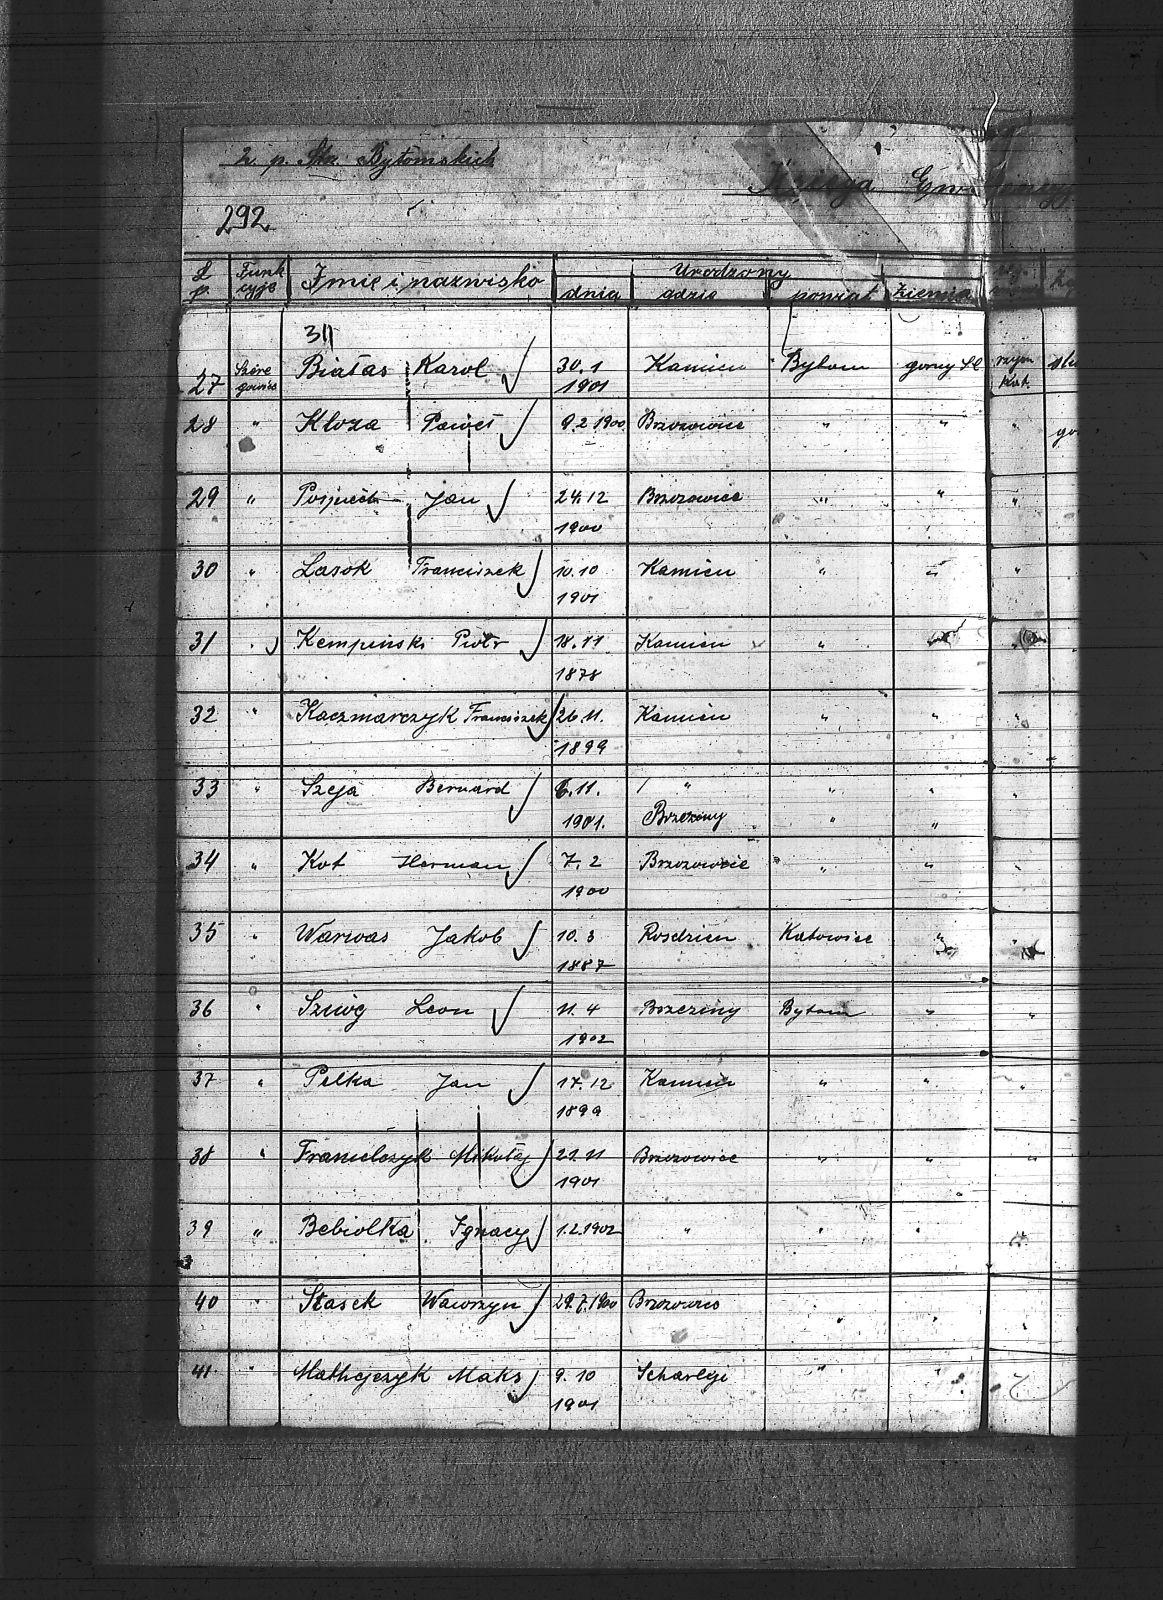 2 p. Strz. Bytomskich
Księga Ewidencyj
292
L. p. Funkcyje Imię i nazwisko Urodzony
dnia gdzie powiat Ziemia
311
27 Szeregowiec Białas Karol 30.1 1901 Kamień Bytom gorny Sl rzym Kat.
28 " Kloza Paweł 9.2 1900 Brzozowice " " "
29 " Pospiech Jan 24.12 1900 Brzozowice " " "
30 " Lasok Franciszek 10.10 1901 Kamień " " "
31 " Kempiński Piotr 18.11 1878 Kamień " "
32 " Kaczmarczyk Franciszek 26.11. 1899 Kamień " " "
33 " Szeja Bernard 6.11. 1901. " Brzeziny " " "
34 " Kot Herman 7.2 1900 Brzozowice " " "
35 " Warwas Jakob 10.3 1887 Rosdzień Katowice " "
36 " Szwóg Leon 11.4 1902 Brzeziny Bytom " "
37 " Pelka Jan 17.12 1899 Kamień " " "
38 " Franielczyk Mikołaj 21.11 1901 Brzozowice " " "
39 " Bebiolka Ignacy 1.2.1902 " " " "
40 " Stasek Wawrzyn 29.7.1900 Brzozowice
41 " Mathejczyk Maks 9.10 1901 Scharlej " "